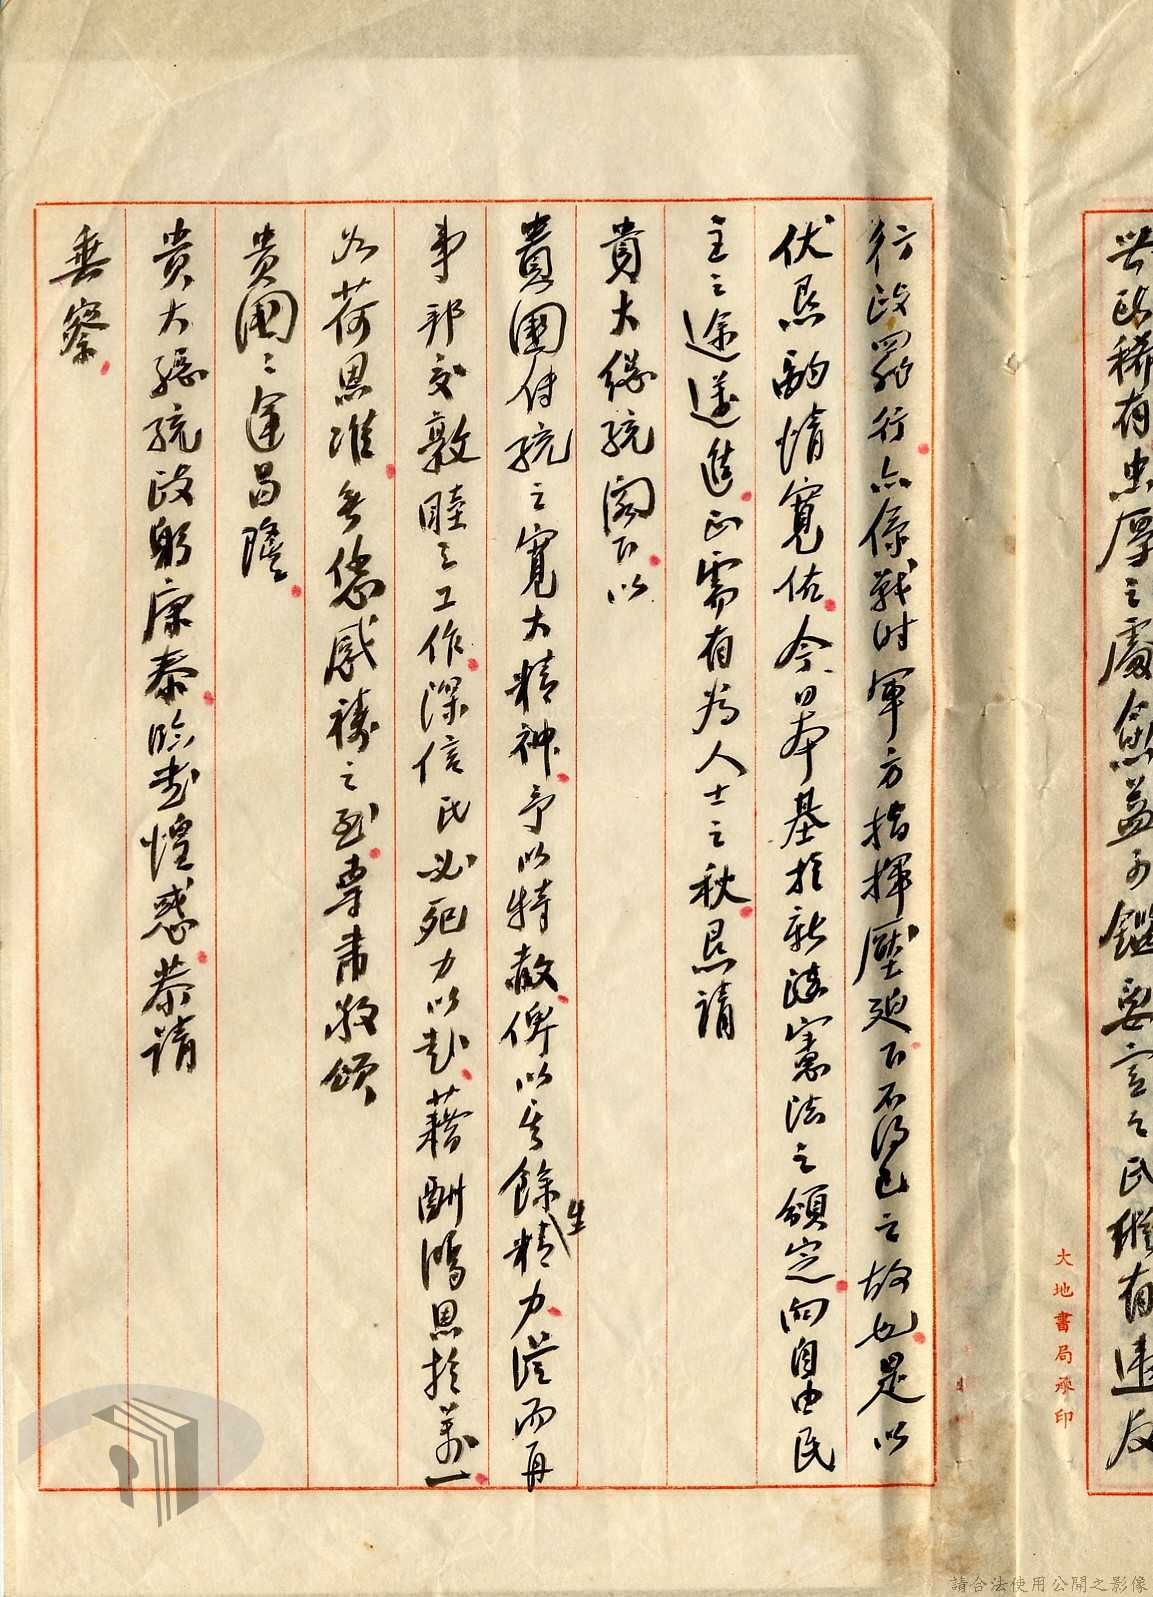 器政稀有忠厚之處無益可鑑要言之氏縱有違反
行政罪行亦係戰時軍方指揮壓迫下不得已之故也是以
伏懇酌情寬佑今日本基於新談憲法之頒定向自由民
主之途邁進正需有為人士之秋恳請
貴大總統閣下以
貴國傳統之寬大精神予以特赦俾以其餘生精力從而再
事邦交敦睦之工作深信氏必死力以赴藉酬鴻恩於萬一
如荷恩准無任感禱之至專肅敬頌
貴國之運昌隆
貴大總統政躬康泰臨書惶惑恭請
垂察
大地書局承印
請合法使用公開之影像